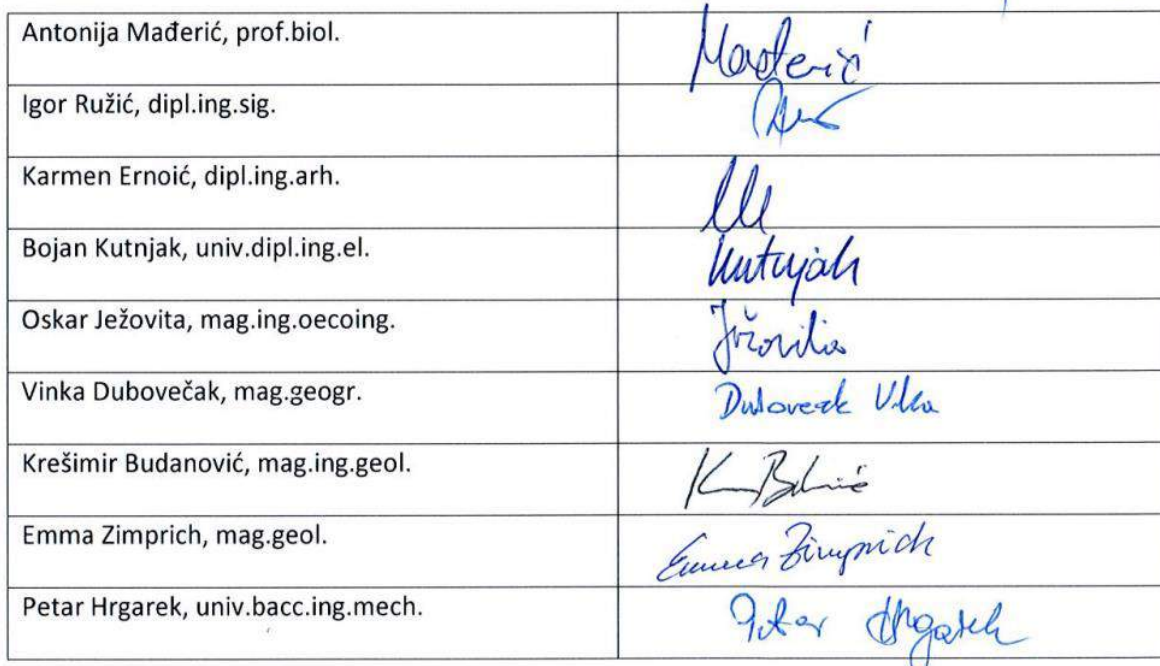 Antonija Mađerić, prof.biol. Mađerić
Igor Ružić, dipl.ing.sig.
Karmen Ernoić, dipl.ing.arh.
Bojan Kutnjak, univ.dipl.ing.el. Kutnjak
Oskar Ježovita, mag.ing.oecoing. Ježovita
Vinka Dubovečak, mag.geogr. Dubovečak
Krešimir Budanović, mag.ing.geol.
Emma Zimprich, mag.geol. Emma Zimprich
Petar Hrgarek, univ.bacc.ing.mech. Petar Hrgarek